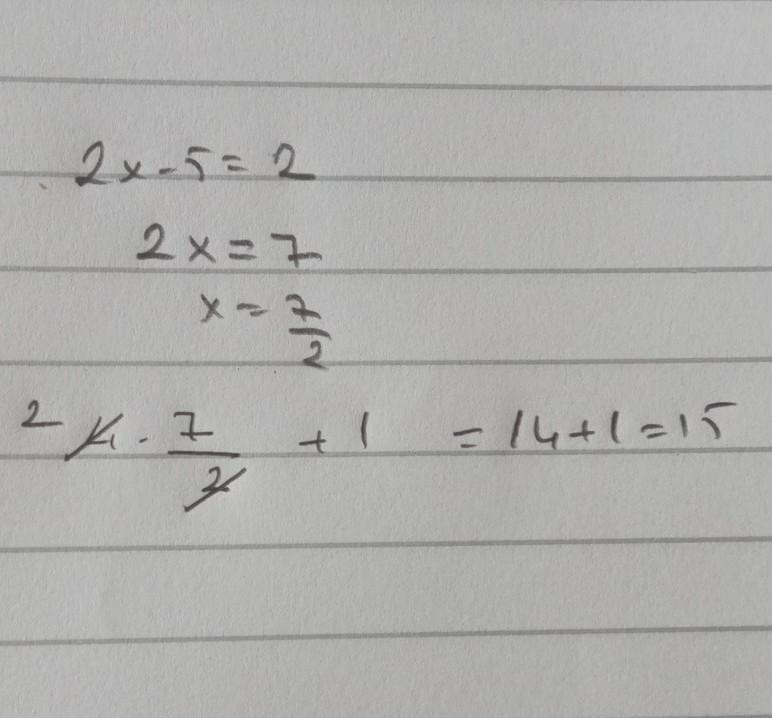 2x-5=2
2x=7
x=7/2
2 4·7/2 +1 =14+1=15